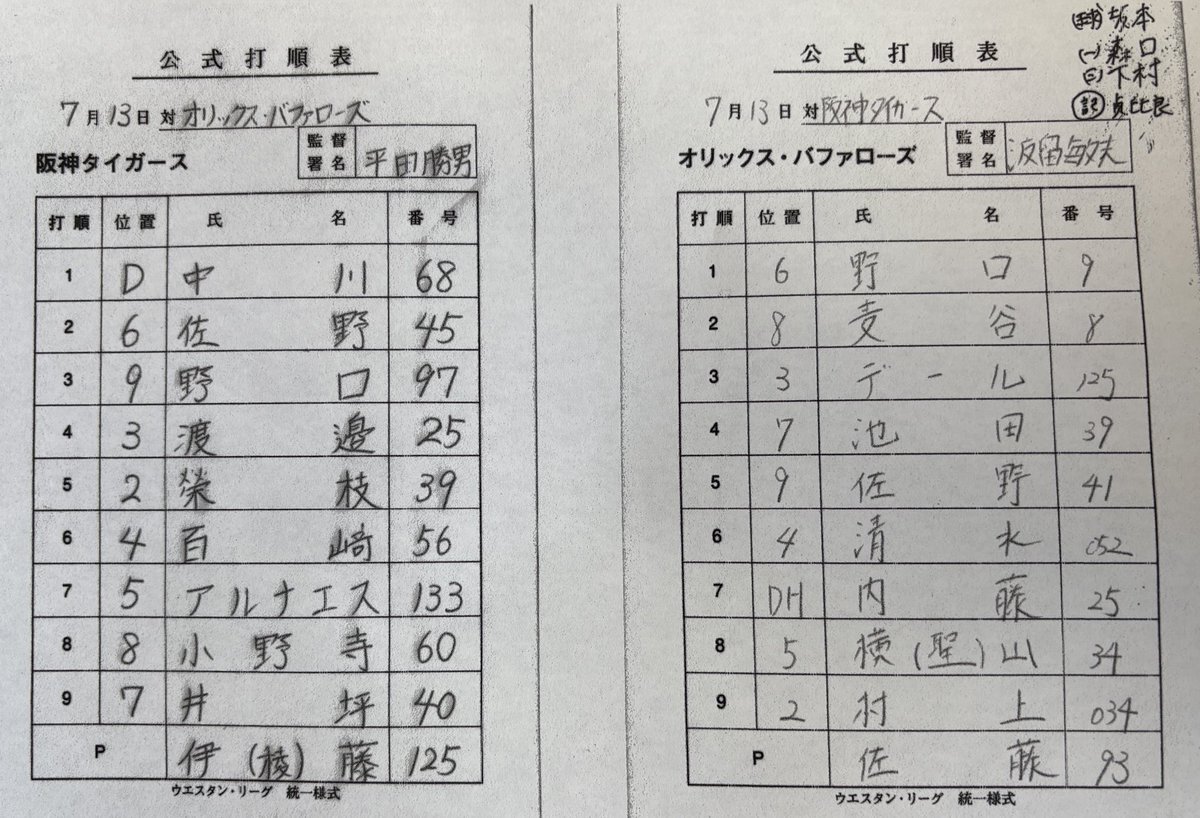 公式打順表
7月13日 対 オリックス・バファローズ
阪神タイガース 監督署名 平田勝男
打順 位置 氏名 番号
1 D 中川 68
2 6 佐野 45
3 9 野口 97
4 3 渡邉 25
5 2 榮枝 39
6 4 百﨑 56
7 5 アルナエス 133
8 8 小野寺 60
9 7 井坪 40
P 伊(稜)藤 125
ウエスタン・リーグ 統一様式
(球)坂本
(一)森口
(三)下村
(記)貞比良
公式打順表
7月13日 対 阪神タイガース
オリックス・バファローズ 監督署名 波留敏夫
打順 位置 氏名 番号
1 6 野口 9
2 8 麦谷 8
3 3 デール 125
4 7 池田 39
5 9 佐野 41
6 4 清水 052
7 DH 内藤 25
8 5 横(聖)山 34
9 2 村上 034
P 佐藤 93
ウエスタン・リーグ 統一様式